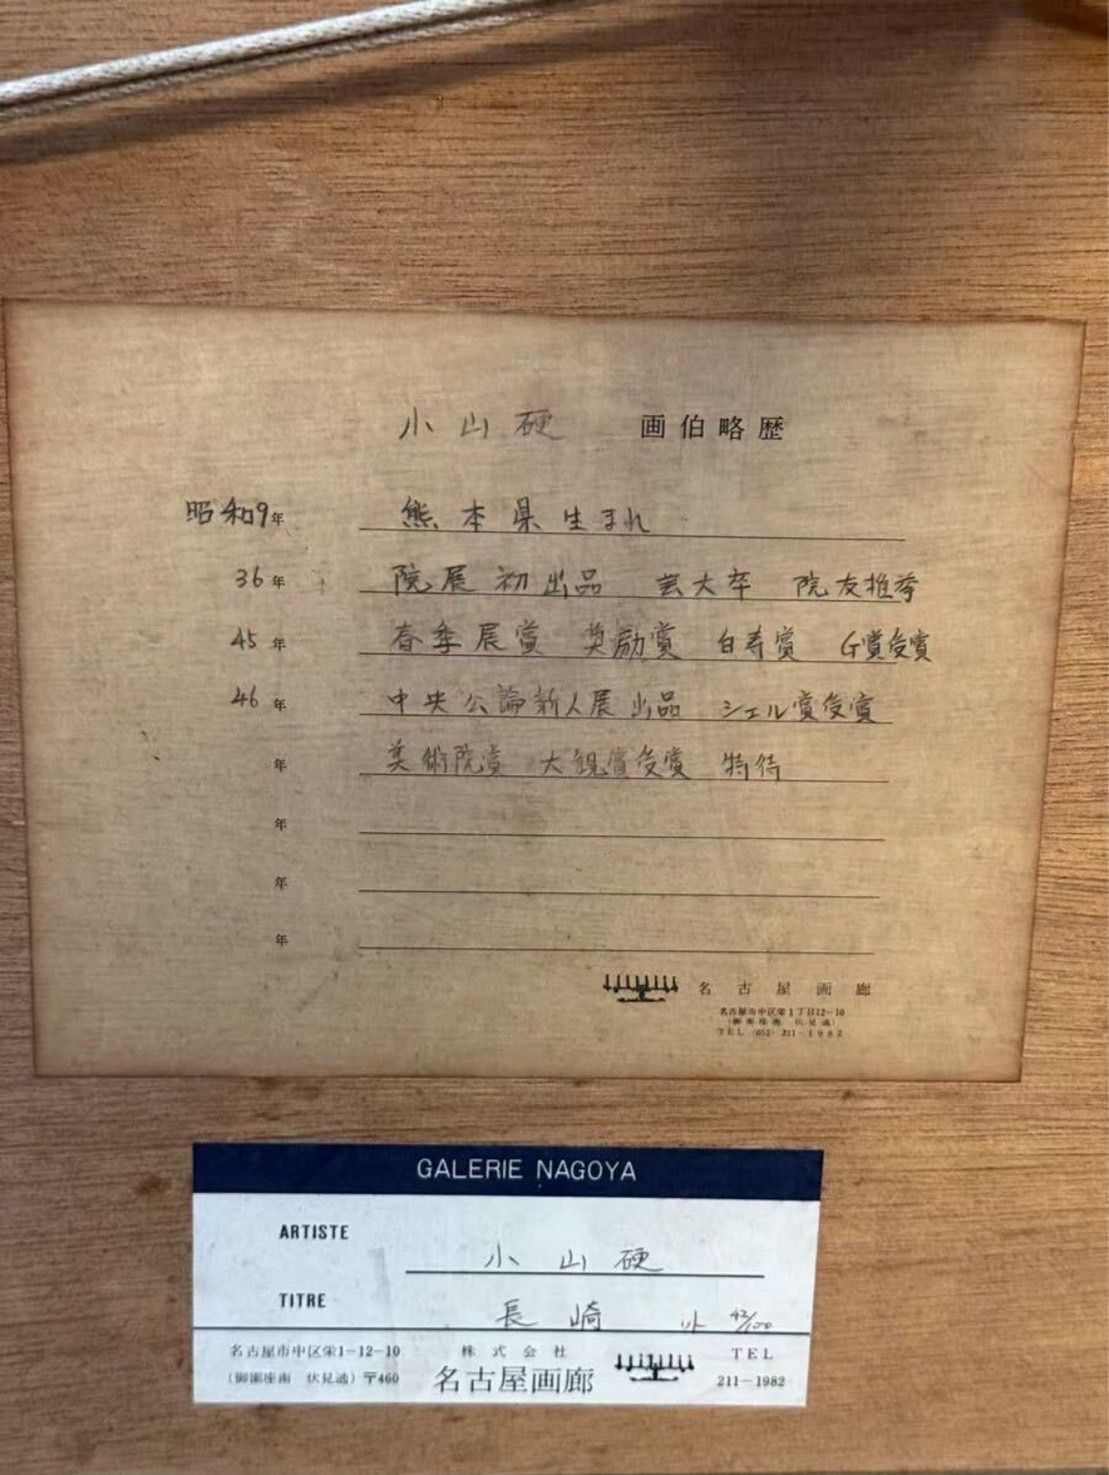 小山硬 画伯略歴
昭和9年 熊本県生まれ
36年 院展初出品 芸大卒 院友推挙
45年 春季展賞 奨励賞 白寿賞 G賞受賞
46年 中央公論新人展出品 シェル賞受賞
年 美術院賞 大観賞受賞 特待
年
年
年
名古屋画廊
名古屋市中区栄1丁目12-10
(御園座南 伏見通)
TEL (052) 211-1982
GALERIE NAGOYA
ARTISTE 小山硬
TITRE 長崎 リト 42/100
名古屋市中区栄1-12-10 株式会社 TEL
(御園座南 伏見通) 〒460 名古屋画廊 211-1982